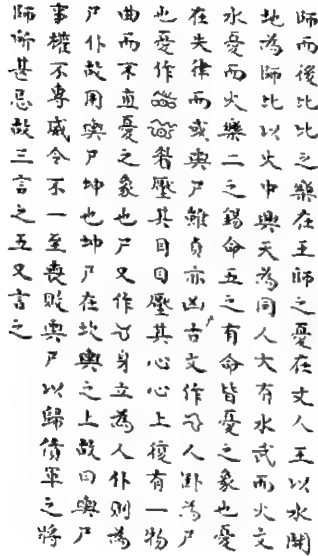 師而後比比之樂在王師之憂在丈人王以水開
地為師比以火中興天為同人大有水武而火文
水憂而火樂二之錫命五之有命皆憂之象也憂
在失律而或輿尸雖貞亦凶古文作人卧為尸
也憂作者壓其目目壓其心心上復有一物
曲而不直憂之象也尸又作身立為人仆則為
尸仆故用輿尸坤也坤尸在坎輿之上故曰輿尸
事權不專威令不一至喪敗輿尸以歸僨軍之將
師所甚忌故三言之五又言之